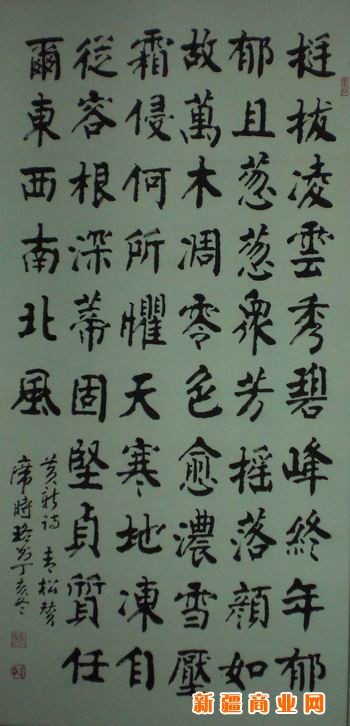 挺拔凌雲秀碧峰終年郁
郁且葱葱衆芳摇落顔如
故萬木凋零色愈濃雪壓
霜侵何所懼天寒地凍自
從容根深蒂固堅貞質任
爾東西南北風
黄新诗 青松赞
席時珞书丁亥冬
新疆商业网